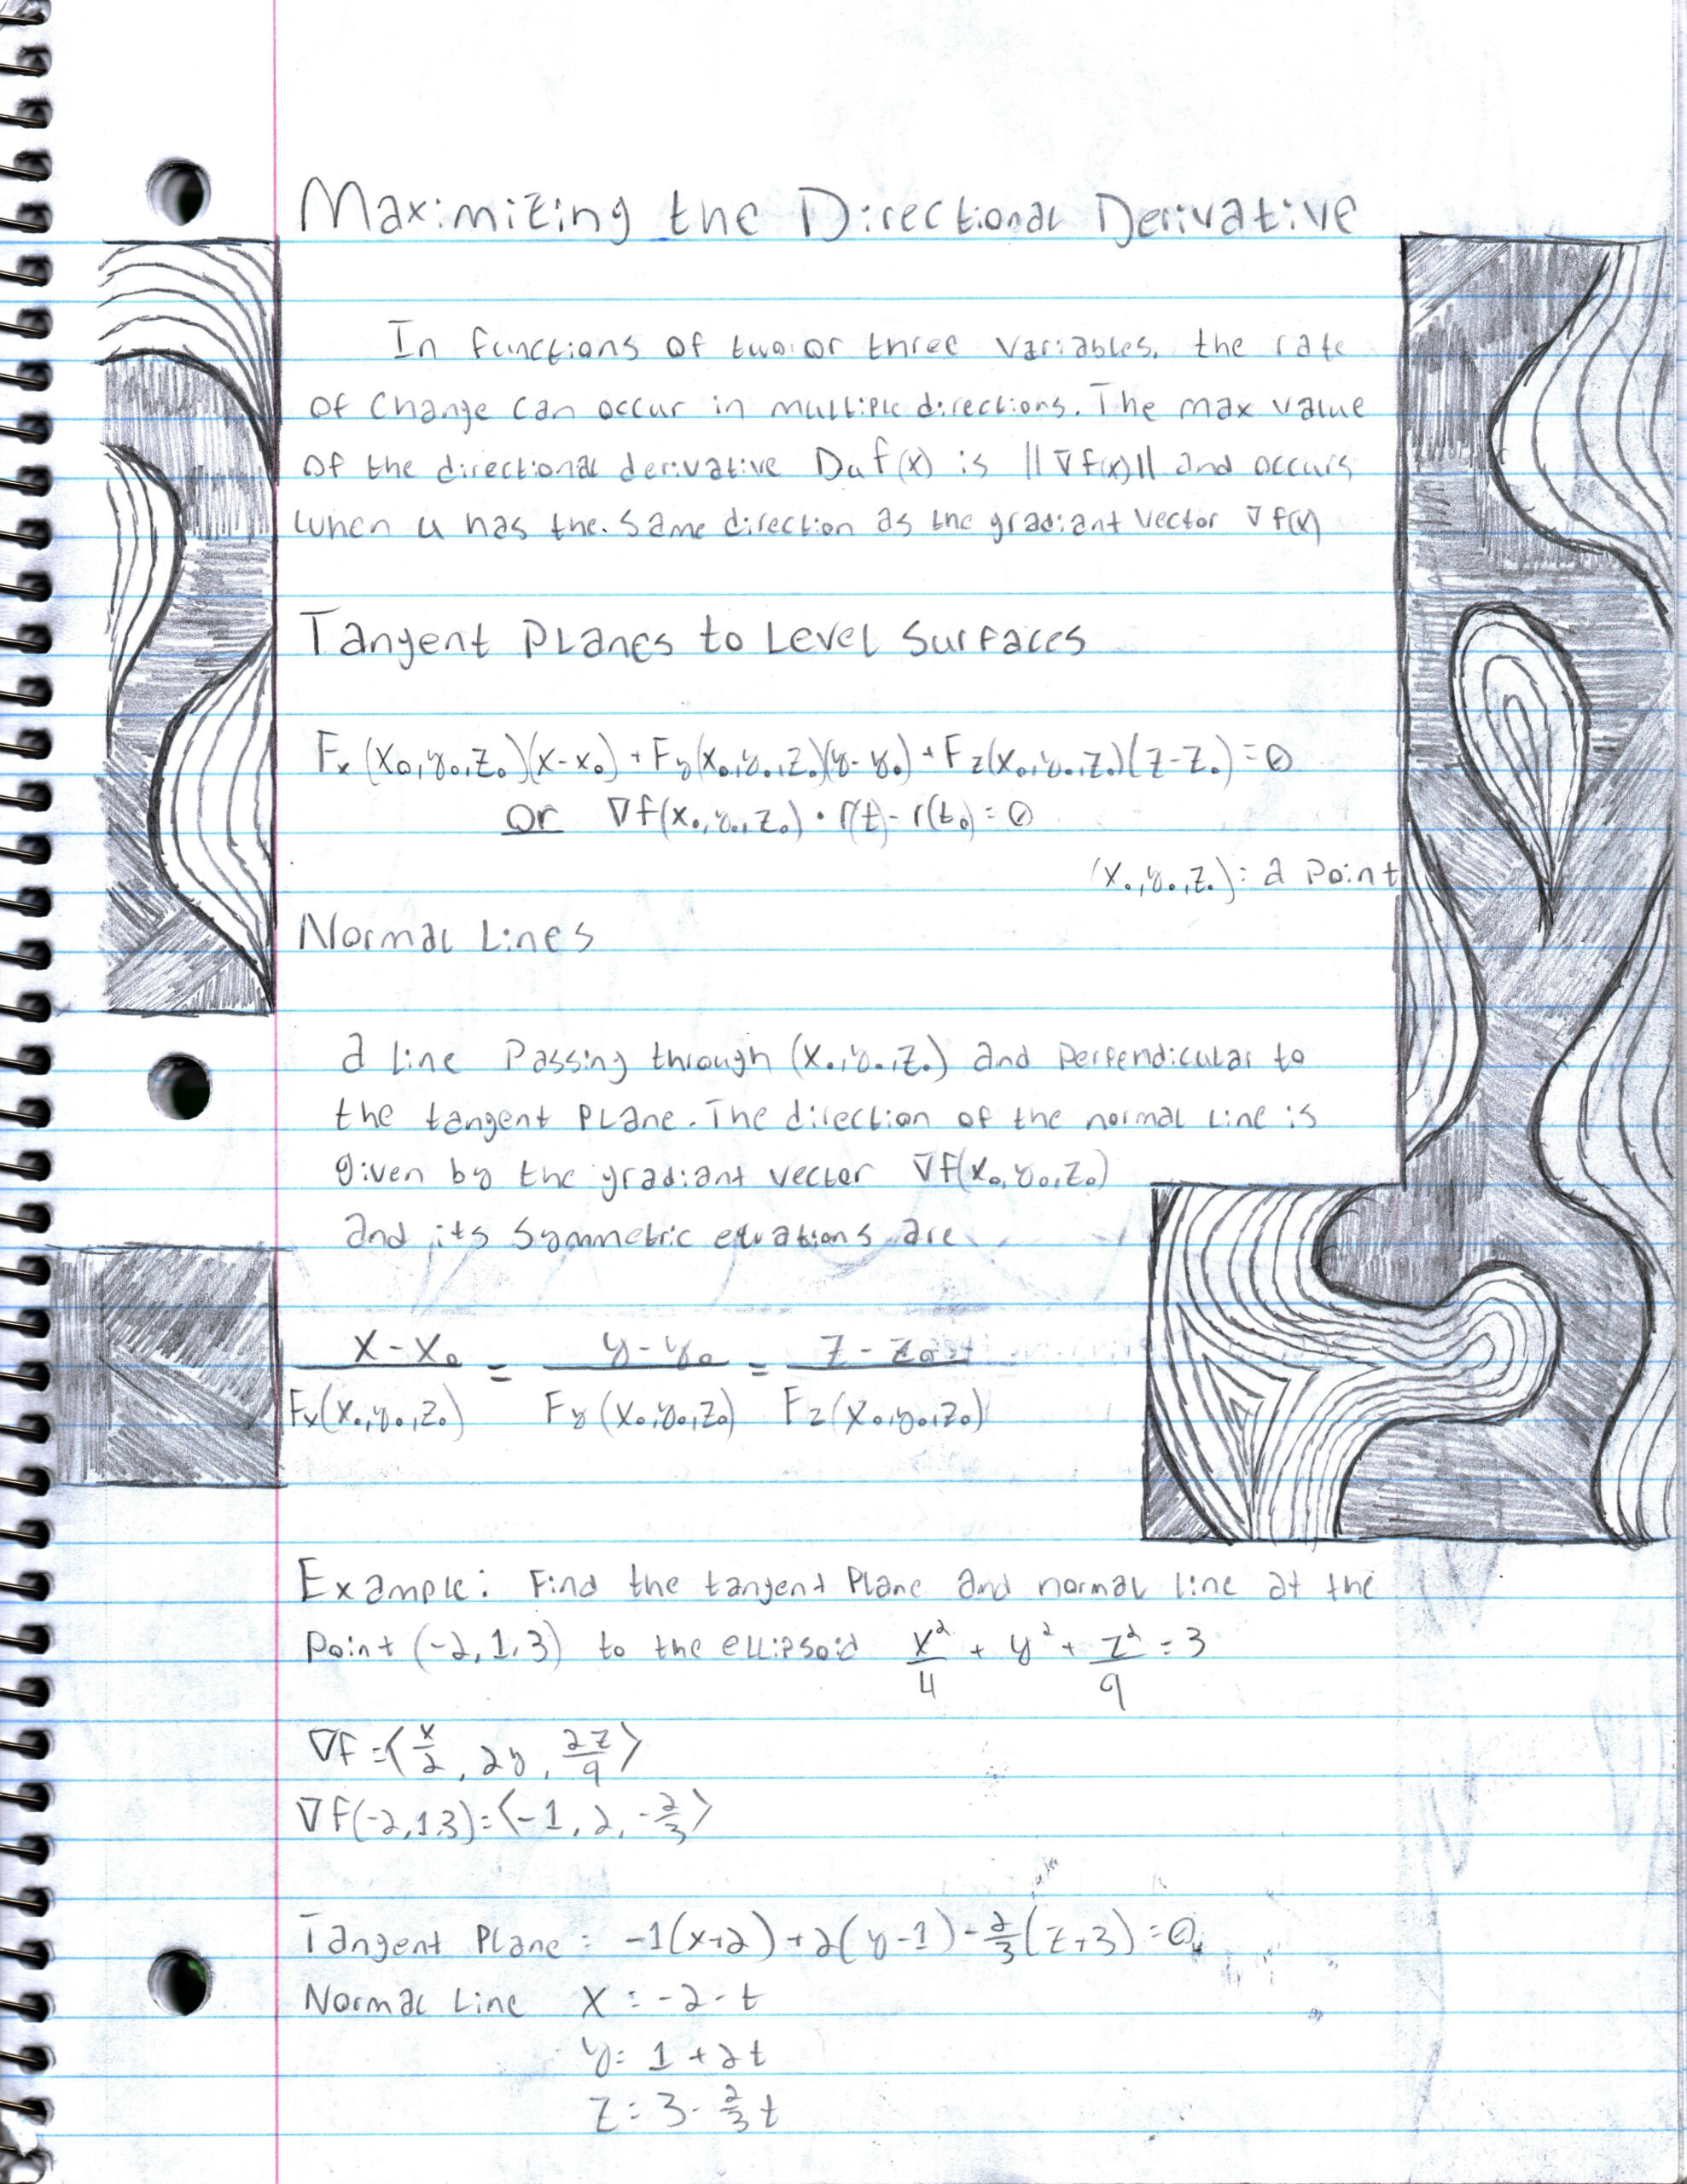 Maximizing the Directional Derivative
In functions of two or three variables, the rate
of change can occur in multiple directions. The max value
of the directional derivative Duf(x) is ||∇f(x)|| and occurs
when u has the same direction as the gradiant vector ∇f(x)
Tangent Planes to Level Surfaces
Fx(x₀,y₀,z₀)(x-x₀)+Fy(x₀,y₀,z₀)(y-y₀)+Fz(x₀,y₀,z₀)(z-z₀)=0
or ∇f(x₀,y₀,z₀)·r(t)-r(t₀)=0
(x₀,y₀,z₀): a point
Normal Lines
a line passing through (x₀,y₀,z₀) and perpendicular to
the tangent plane. The direction of the normal line is
given by the gradiant vector ∇f(x₀,y₀,z₀)
and its symmetric equations are
x-x₀ / Fx(x₀,y₀,z₀) = y-y₀ / Fy(x₀,y₀,z₀) = z-z₀ / Fz(x₀,y₀,z₀)
Example: Find the tangent plane and normal line at the
point (-2,1,3) to the ellipsoid x²/4 + y² + z²/9 = 3
∇f=⟨x/2, 2y, 2z/9⟩
∇f(-2,1,3)=⟨-1, 2, -2/3⟩
Tangent Plane: -1(x+2)+2(y-1)-2/3(z+3)=0
Normal Line x=-2-t
y=1+2t
z=3-2/3t